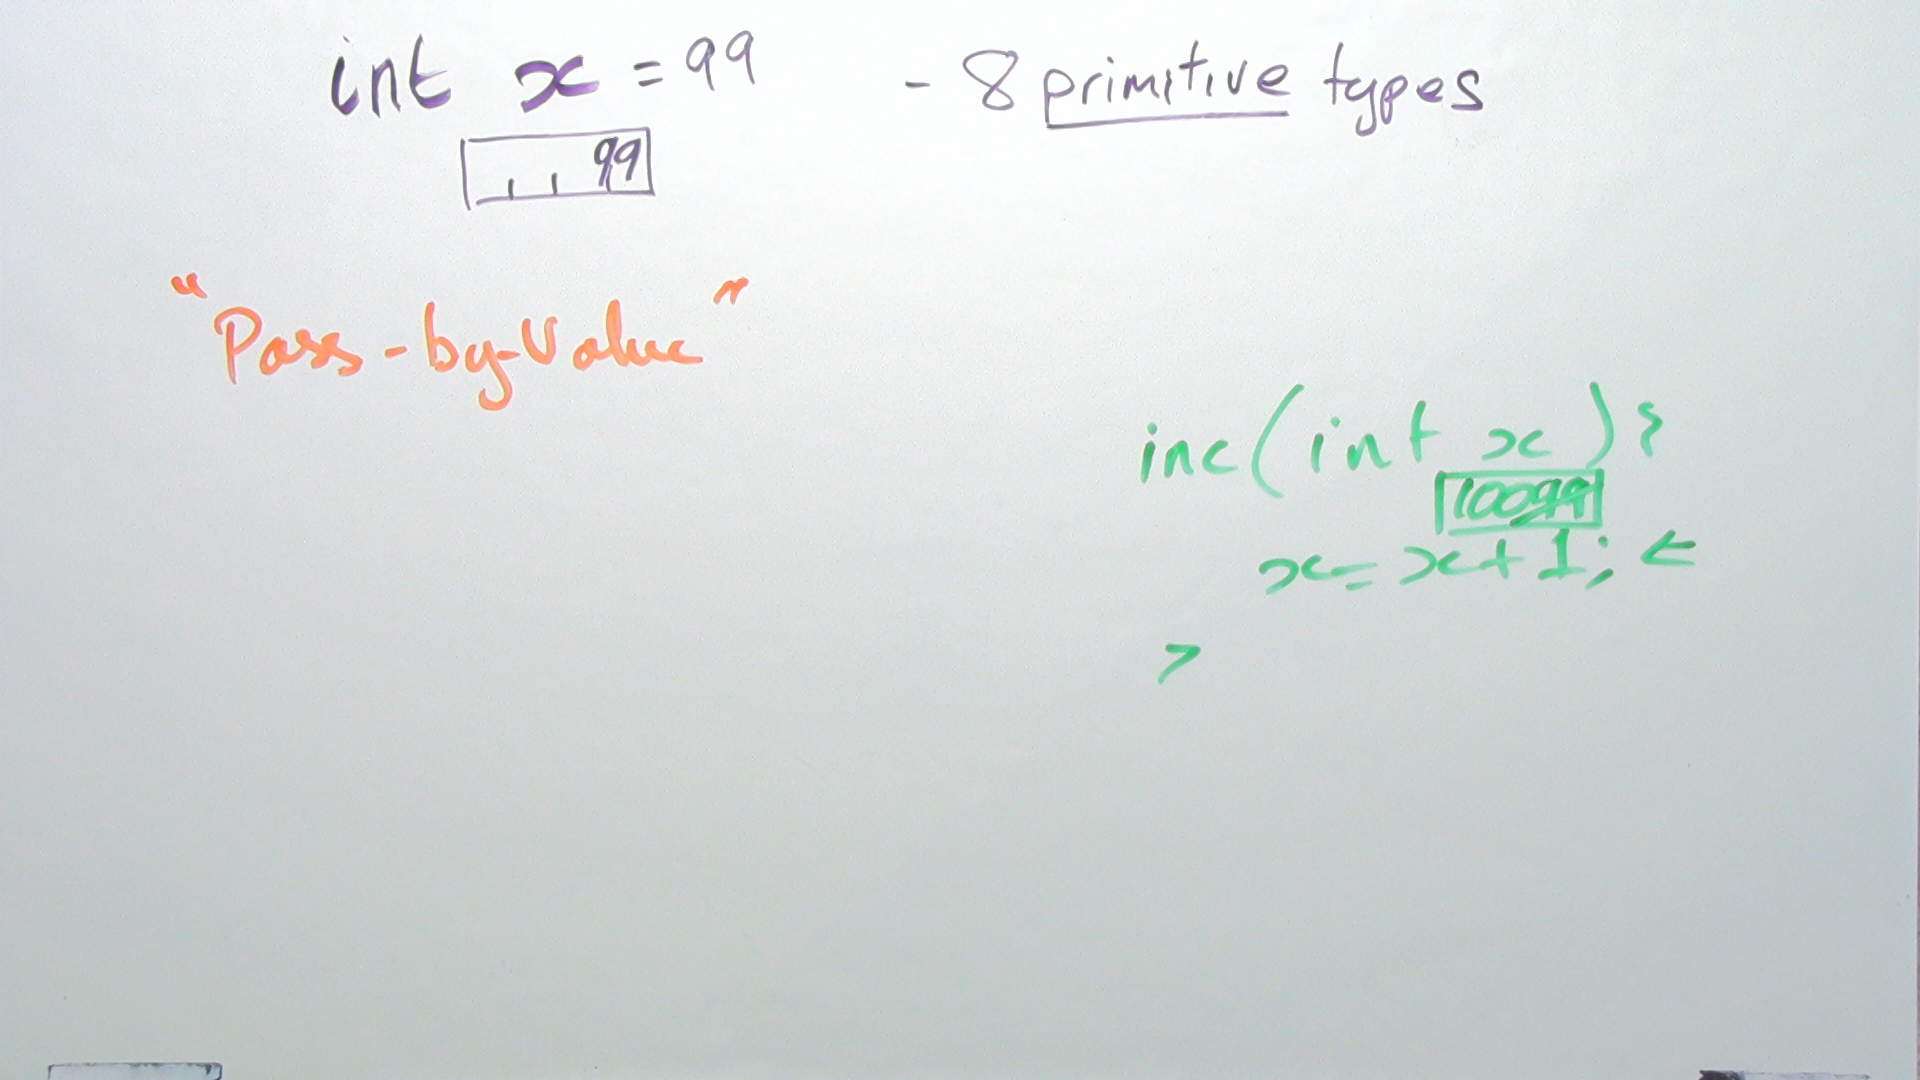 int x = 99 - 8 primitive types
99
"Pass-by-Value"
inc(int x){
10099
x = x + 1; ←
}